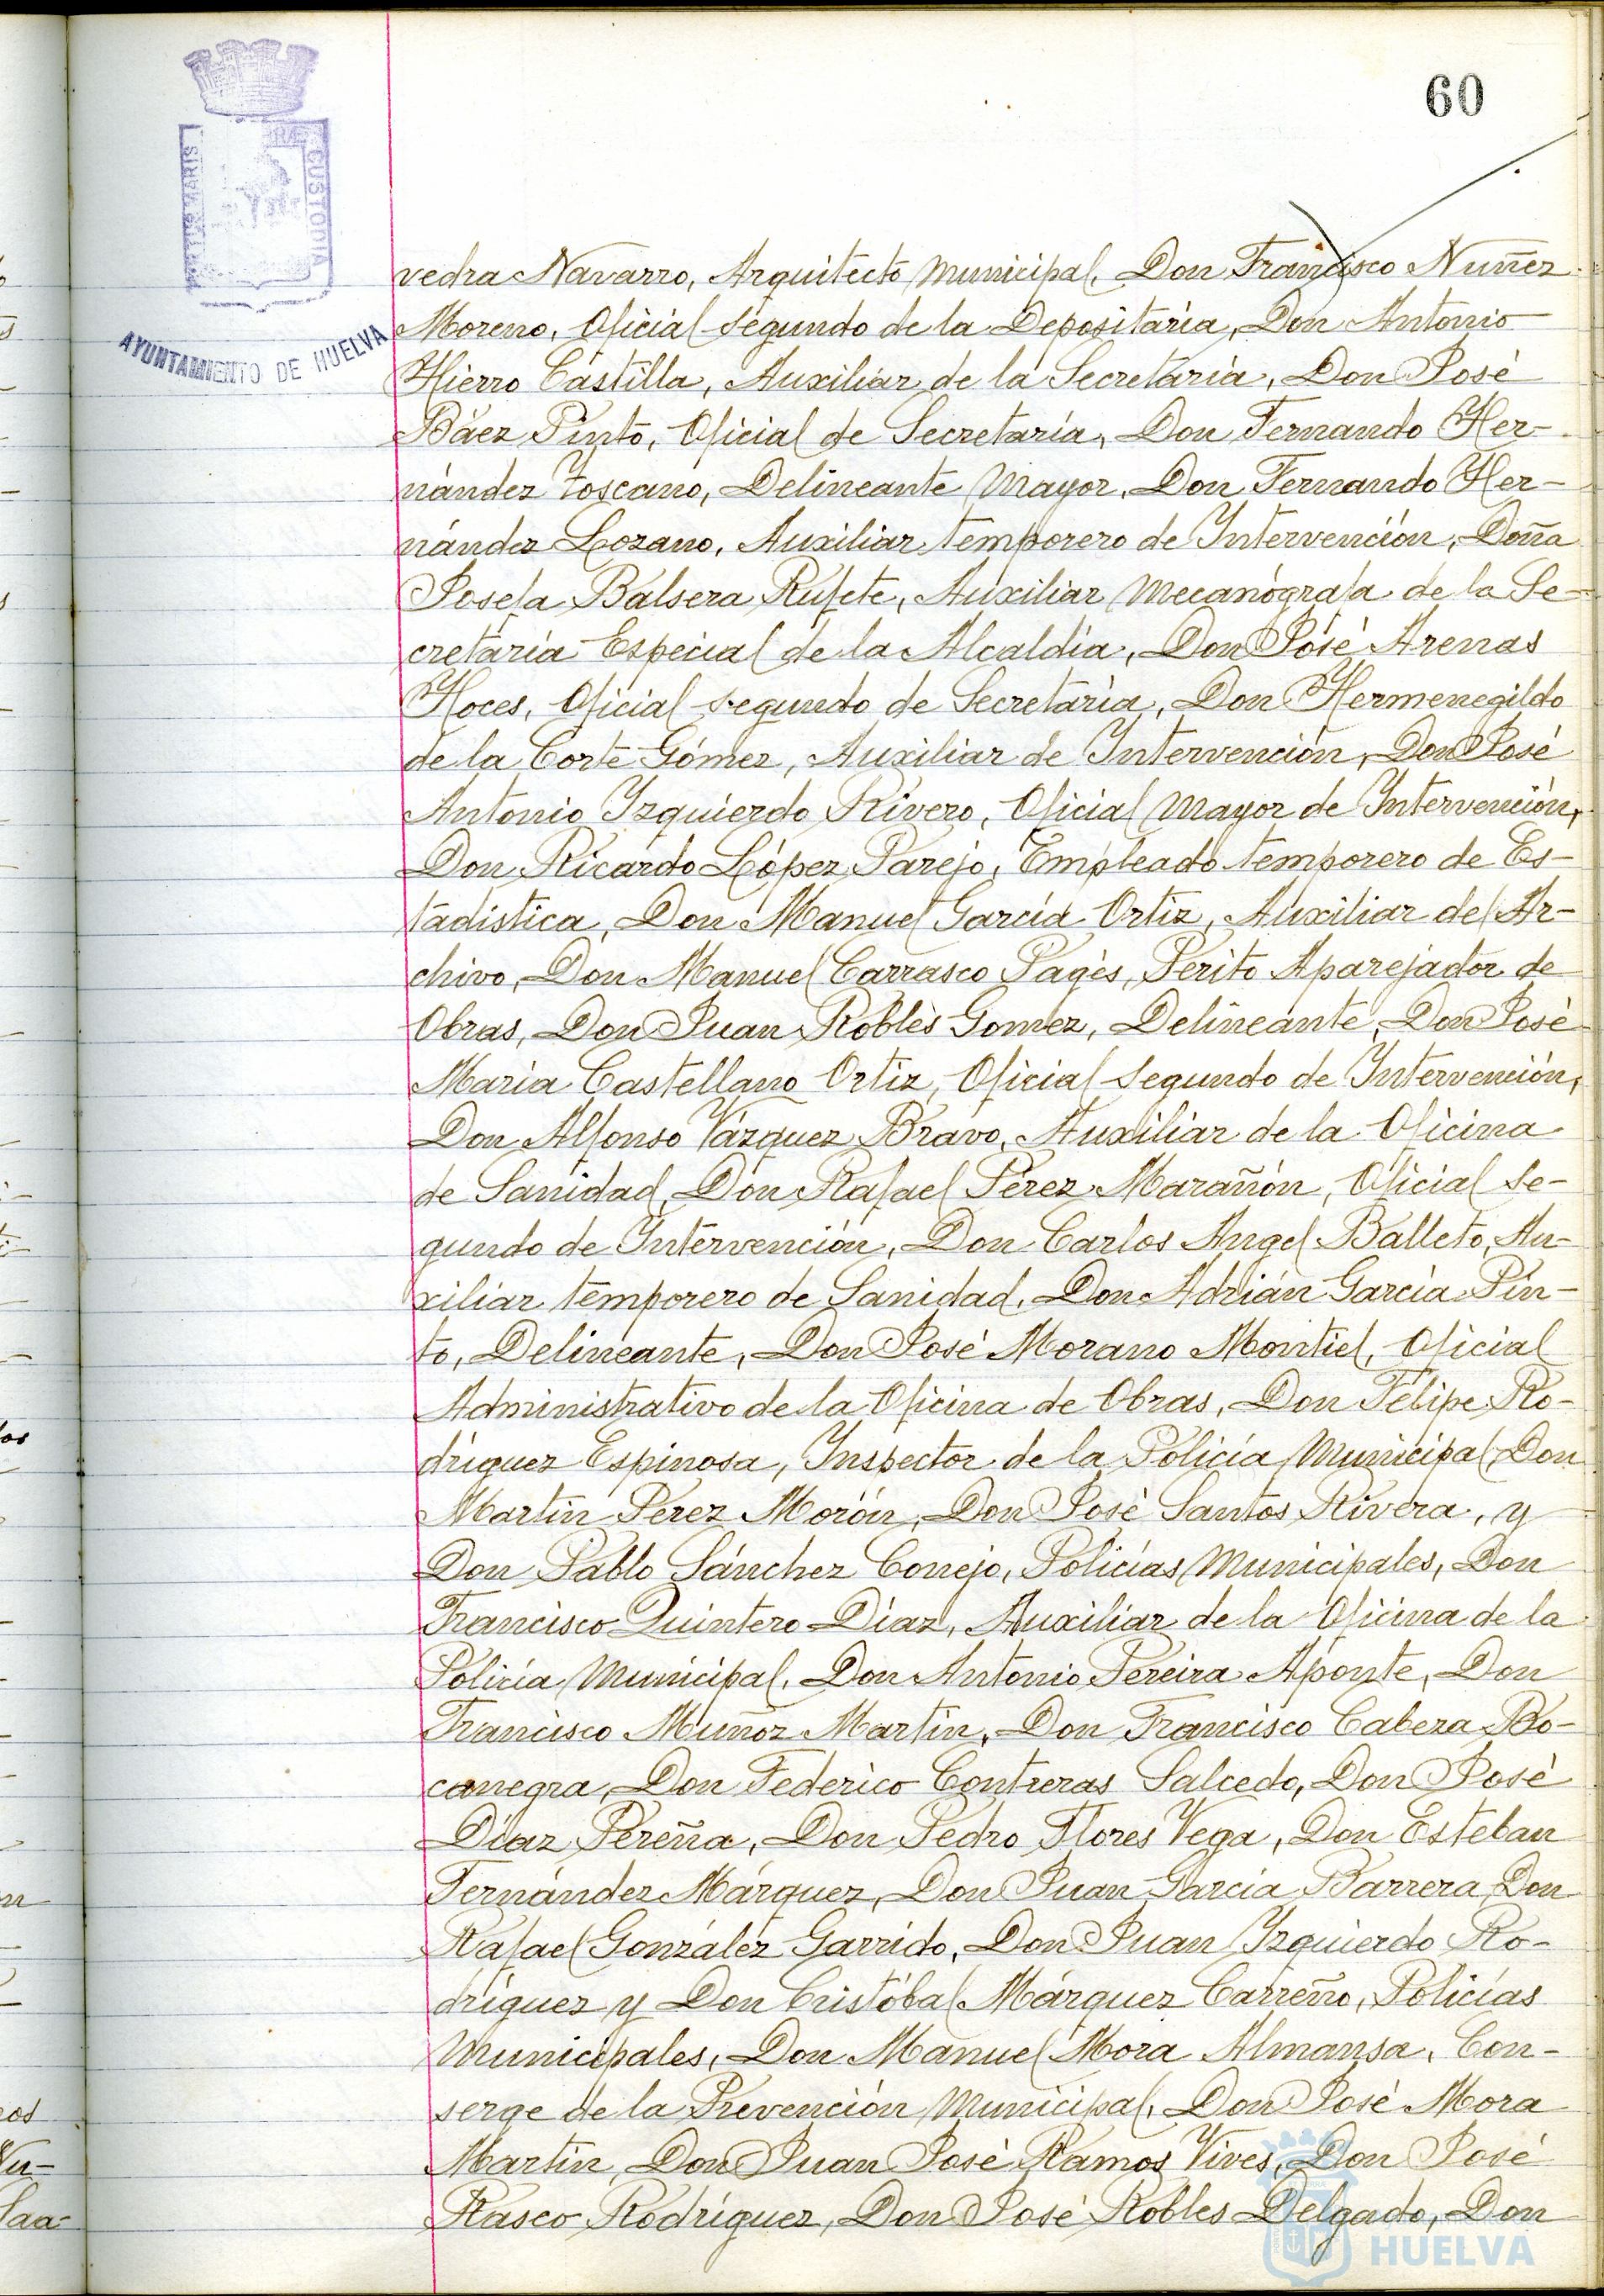 60
PORTUS MARIS
CUSTODIA
AYUNTAMIENTO DE HUELVA
vedra Navarro, Arquitecto Municipal, Don Francisco Nuñez
Moreno, Oficial segundo de la Depositaría, Don Antonio
Hierro Castilla, Auxiliar de la Secretaría, Don José
Báez Pinto, Oficial de Secretaría, Don Fernando Her-
nández Toscano, Delineante Mayor, Don Fernando Her-
nández Lozano, Auxiliar temporero de Intervención, Doña
Josefa Balsera Rufete, Auxiliar Mecanógrafa de la Se-
cretaría Especial de la Alcaldía, Don José Arenas
Hoces, Oficial segundo de Secretaría, Don Hermenegildo
de la Corte Gómez, Auxiliar de Intervención, Don José
Antonio Izquierdo Rivero, Oficial Mayor de Intervención,
Don Ricardo López Parejo, Empleado temporero de Es-
tadística, Don Manuel García Ortiz, Auxiliar del Ar-
chivo, Don Manuel Carrasco Pagés, Perito Aparejador de
Obras, Don Juan Robles Gomez, Delineante, Don José
Maria Castellano Ortiz, Oficial segundo de Intervención,
Don Alfonso Vázquez Bravo, Auxiliar de la Oficina
de Sanidad, Don Rafael Pérez Marañón, Oficial se-
gundo de Intervención, Don Carlos Angel Balleto, Au-
xiliar temporero de Sanidad, Don Adrián García Pin-
to, Delineante, Don José Morano Montiel, Oficial
Administrativo de la Oficina de Obras, Don Felipe Ro-
dríguez Espinosa, Inspector de la Policía Municipal, Don
Martín Pérez Morón, Don José Santos Rivera, y
Don Pablo Sánchez Conejo, Policías Municipales, Don
Francisco Quintero Díaz, Auxiliar de la Oficina de la
Policía Municipal, Don Antonio Pereira Aponte, Don
Francisco Muñoz Martín, Don Francisco Cabeza Bo-
canegra, Don Federico Contreras Salcedo, Don José
Díaz Pereña, Don Pedro Flores Vega, Don Esteban
Fernández Márquez, Don Juan García Barrera, Don
Rafael González Garrido, Don Juan Izquierdo Ro-
dríguez y Don Cristóbal Márquez Carreño, Policías
Municipales, Don Manuel Mora Almansa, Con-
serge de la Prevención Municipal, Don José Mora
Martín, Don Juan José Ramos Vives, Don José
Rasco Rodríguez, Don José Robles Delgado, Don
HUELVA